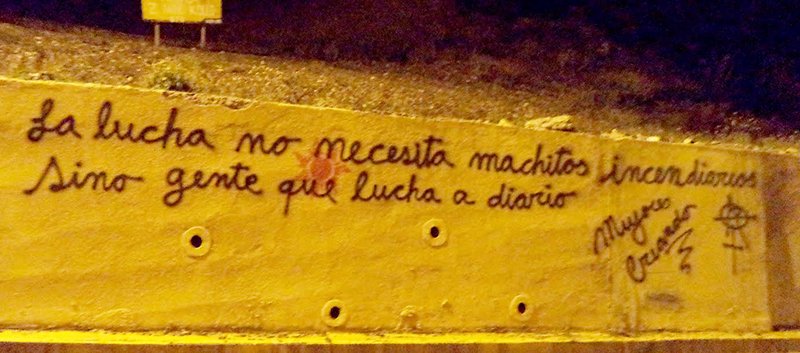 La lucha no necesita machitos incendiarios
Sino gente que lucha a diario
Mujeres
Creando